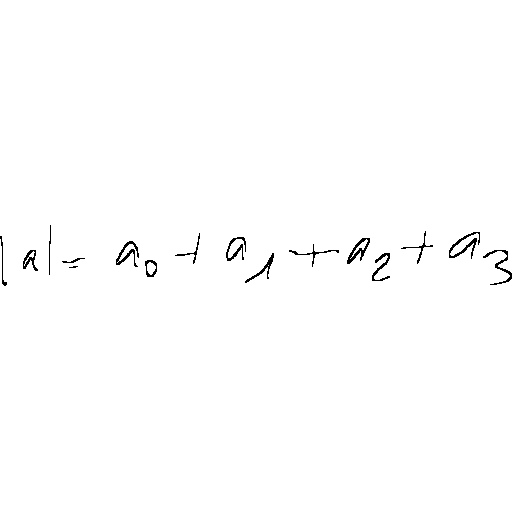 |a| = a_0 + a_1 + a_2 + a_3